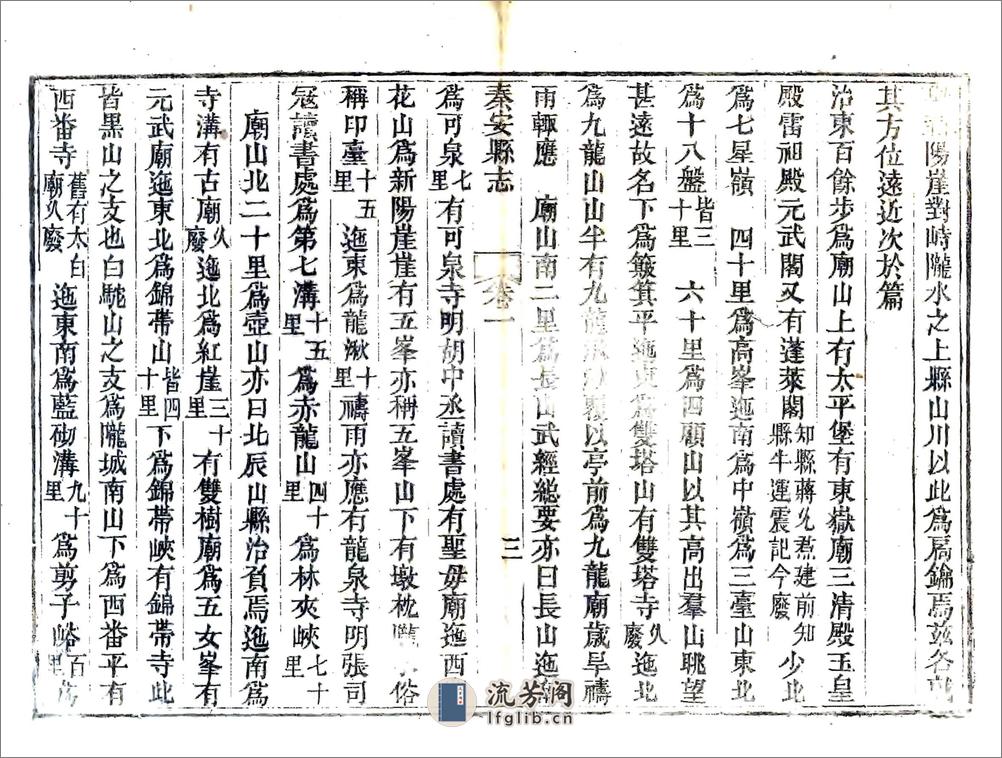 陽崖對峙隴水之上縣山川以此爲扃鐍焉茲各
其方位遠近次於篇
治東百餘步爲廟山上有太平堡有東嶽廟三清殿玉皇
殿雷祖殿元武閣又有蓬萊閣知縣蔣允焄建前知縣牛運震記今廢 少北
爲七星嶺 四十里爲高峯迤南爲中嶺爲三臺山東北
爲十八盤皆三十里 六十里爲四顧山以其高出羣山眺望
甚遠故名下爲簸箕平迤東爲雙塔山有雙塔寺久廢 迤北
爲九龍山山半有九龍以亭前爲九龍廟歲旱禱
雨輒應 廟山南二里爲長山武經總要亦曰長山迤
秦安縣志 卷一 三
爲可泉七里有可泉寺明胡中丞讀書處有聖母廟迤西
花山爲新陽崖崖有五峯亦稱五峯山下有墩枕隴俗
稱印臺十五里 迤東爲龍湫十里禱雨亦應有龍泉寺明張司
寇讀書處爲第七溝十五里 爲赤龍山四十里 爲林夾峽七十里
廟山北二十里爲壺山亦曰北辰山縣治負焉迤南爲
寺溝有古廟久廢 迤北爲紅崖三十里 有雙樹廟爲五女峯有
元武廟迤東北爲錦帶山皆四十里 下爲錦帶峽有錦帶寺此
皆黑山之支也白駞山之支爲隴城南山下爲西番平有
西番寺舊有太白廟久廢 迤東南爲藍砌溝九十里 爲剪子峪百里爲
流芳阁
lfglib.cn